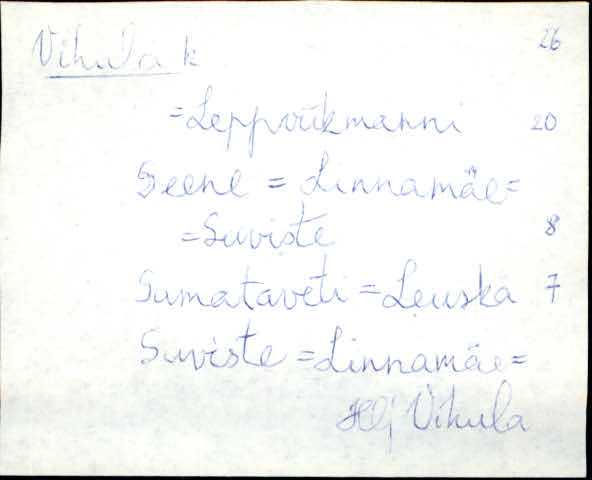 Vihula k 26
=Leppviikmanni 20
Seene = Linnamäe=
=Suviste 8
Sumataveti = Leuska 7
Suviste = Linnamäe=
Hlj Vihula